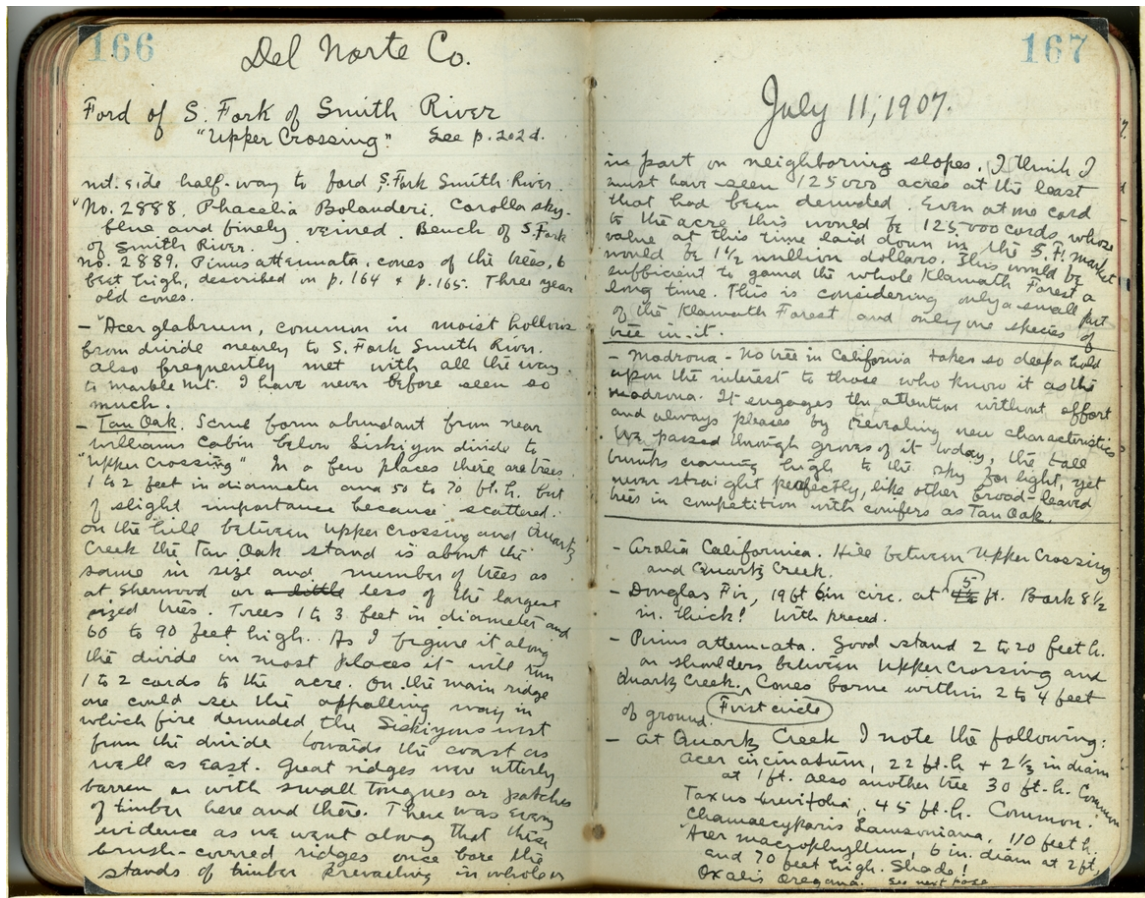 166
Del Norte Co.
Ford of S. Fork of Smith River
"Upper Crossing." See p. 202d.
mt. side half-way to ford S. Fork Smith River.
No. 2888. Phacelia Bolanderi. Corolla sky-
blue and finely veined. Bench of S. Fork
of Smith River.
No. 2889. Pinus attenuata, cones of the trees, 6
feet high, described on p. 164 & p. 165. Three year
old cones.
– Acer glabrum, common in moist hollows
from divide nearly to S. Fork Smith River.
also frequently met with all the way
to Marble Mt. I have never before seen so
much.
– Tan Oak. Scrub form abundant from near
Williams Cabin below Siskiyou divide to
"Upper Crossing". In a few places there are trees
1 to 2 feet in diameter and 50 to 70 ft. h. but
of slight importance because scattered.
On the hill between Upper Crossing and Quartz
Creek the Tan Oak stand is about the
same in size and number of trees as
at Sherwood or a little less of the largest
sized trees. Trees 1 to 3 feet in diameter and
60 to 90 feet high. As I figure it along
the divide in most places it will run
1 to 2 cords to the acre. On the main ridge
one could see the appalling way in
which fire denuded the Siskiyous west
from the divide towards the coast as
well as east. Great ridges were utterly
barren or with small tongues or patches
of timber here and there. There was every
evidence as we went along that these
brush-covered ridges once bore the
stands of timber prevailing in whole or
167
July 11, 1907.
in part on neighboring slopes. I think I
must have seen 125000 acres at the least
that had been denuded. Even at one cord
to the acre this would be 125,000 cords, whose
value at this time laid down in the S.F. market
would be 1 1/2 million dollars. This would be
sufficient to guard the whole Klamath Forest a
long time. This is considering only a small part
of the Klamath Forest and only one species of
tree in it.
– Madrona – No tree in California takes so deep a hold
upon the interest to those who know it as the
Madrona. It engages the attention without effort
and always pleases by revealing new characteristics
We passed through groves of it today, the tall
trunks running high to the sky for light, yet
never straight perfectly, like other broad-leaved
trees in competition with conifers as Tan Oak.
– Aralia Californica. Hill between Upper Crossing
and Quartz Creek.
– Douglas Fir, 19 ft 6 in circ. at 5 ft. Bark 8 1/2
in. thick! With preced.
– Pinus attenuata. Good stand 2 to 20 feet h.
on shoulders between Upper Crossing and
Quartz Creek. Cones borne within 2 to 4 feet
of ground. First circle
– At Quartz Creek I note the following:
Acer circinatum, 22 ft. h & 2 1/3 in diam
at 1 ft. also another tree 30 ft. h. Common
Taxus brevifolia, 45 ft. h. Common.
Chamaecyparis Lawsoniana, 110 feet h.
Acer macrophyllum, 6 in. diam at 2 ft,
and 70 feet high. Shade!
Oxalis Oregana. See next page